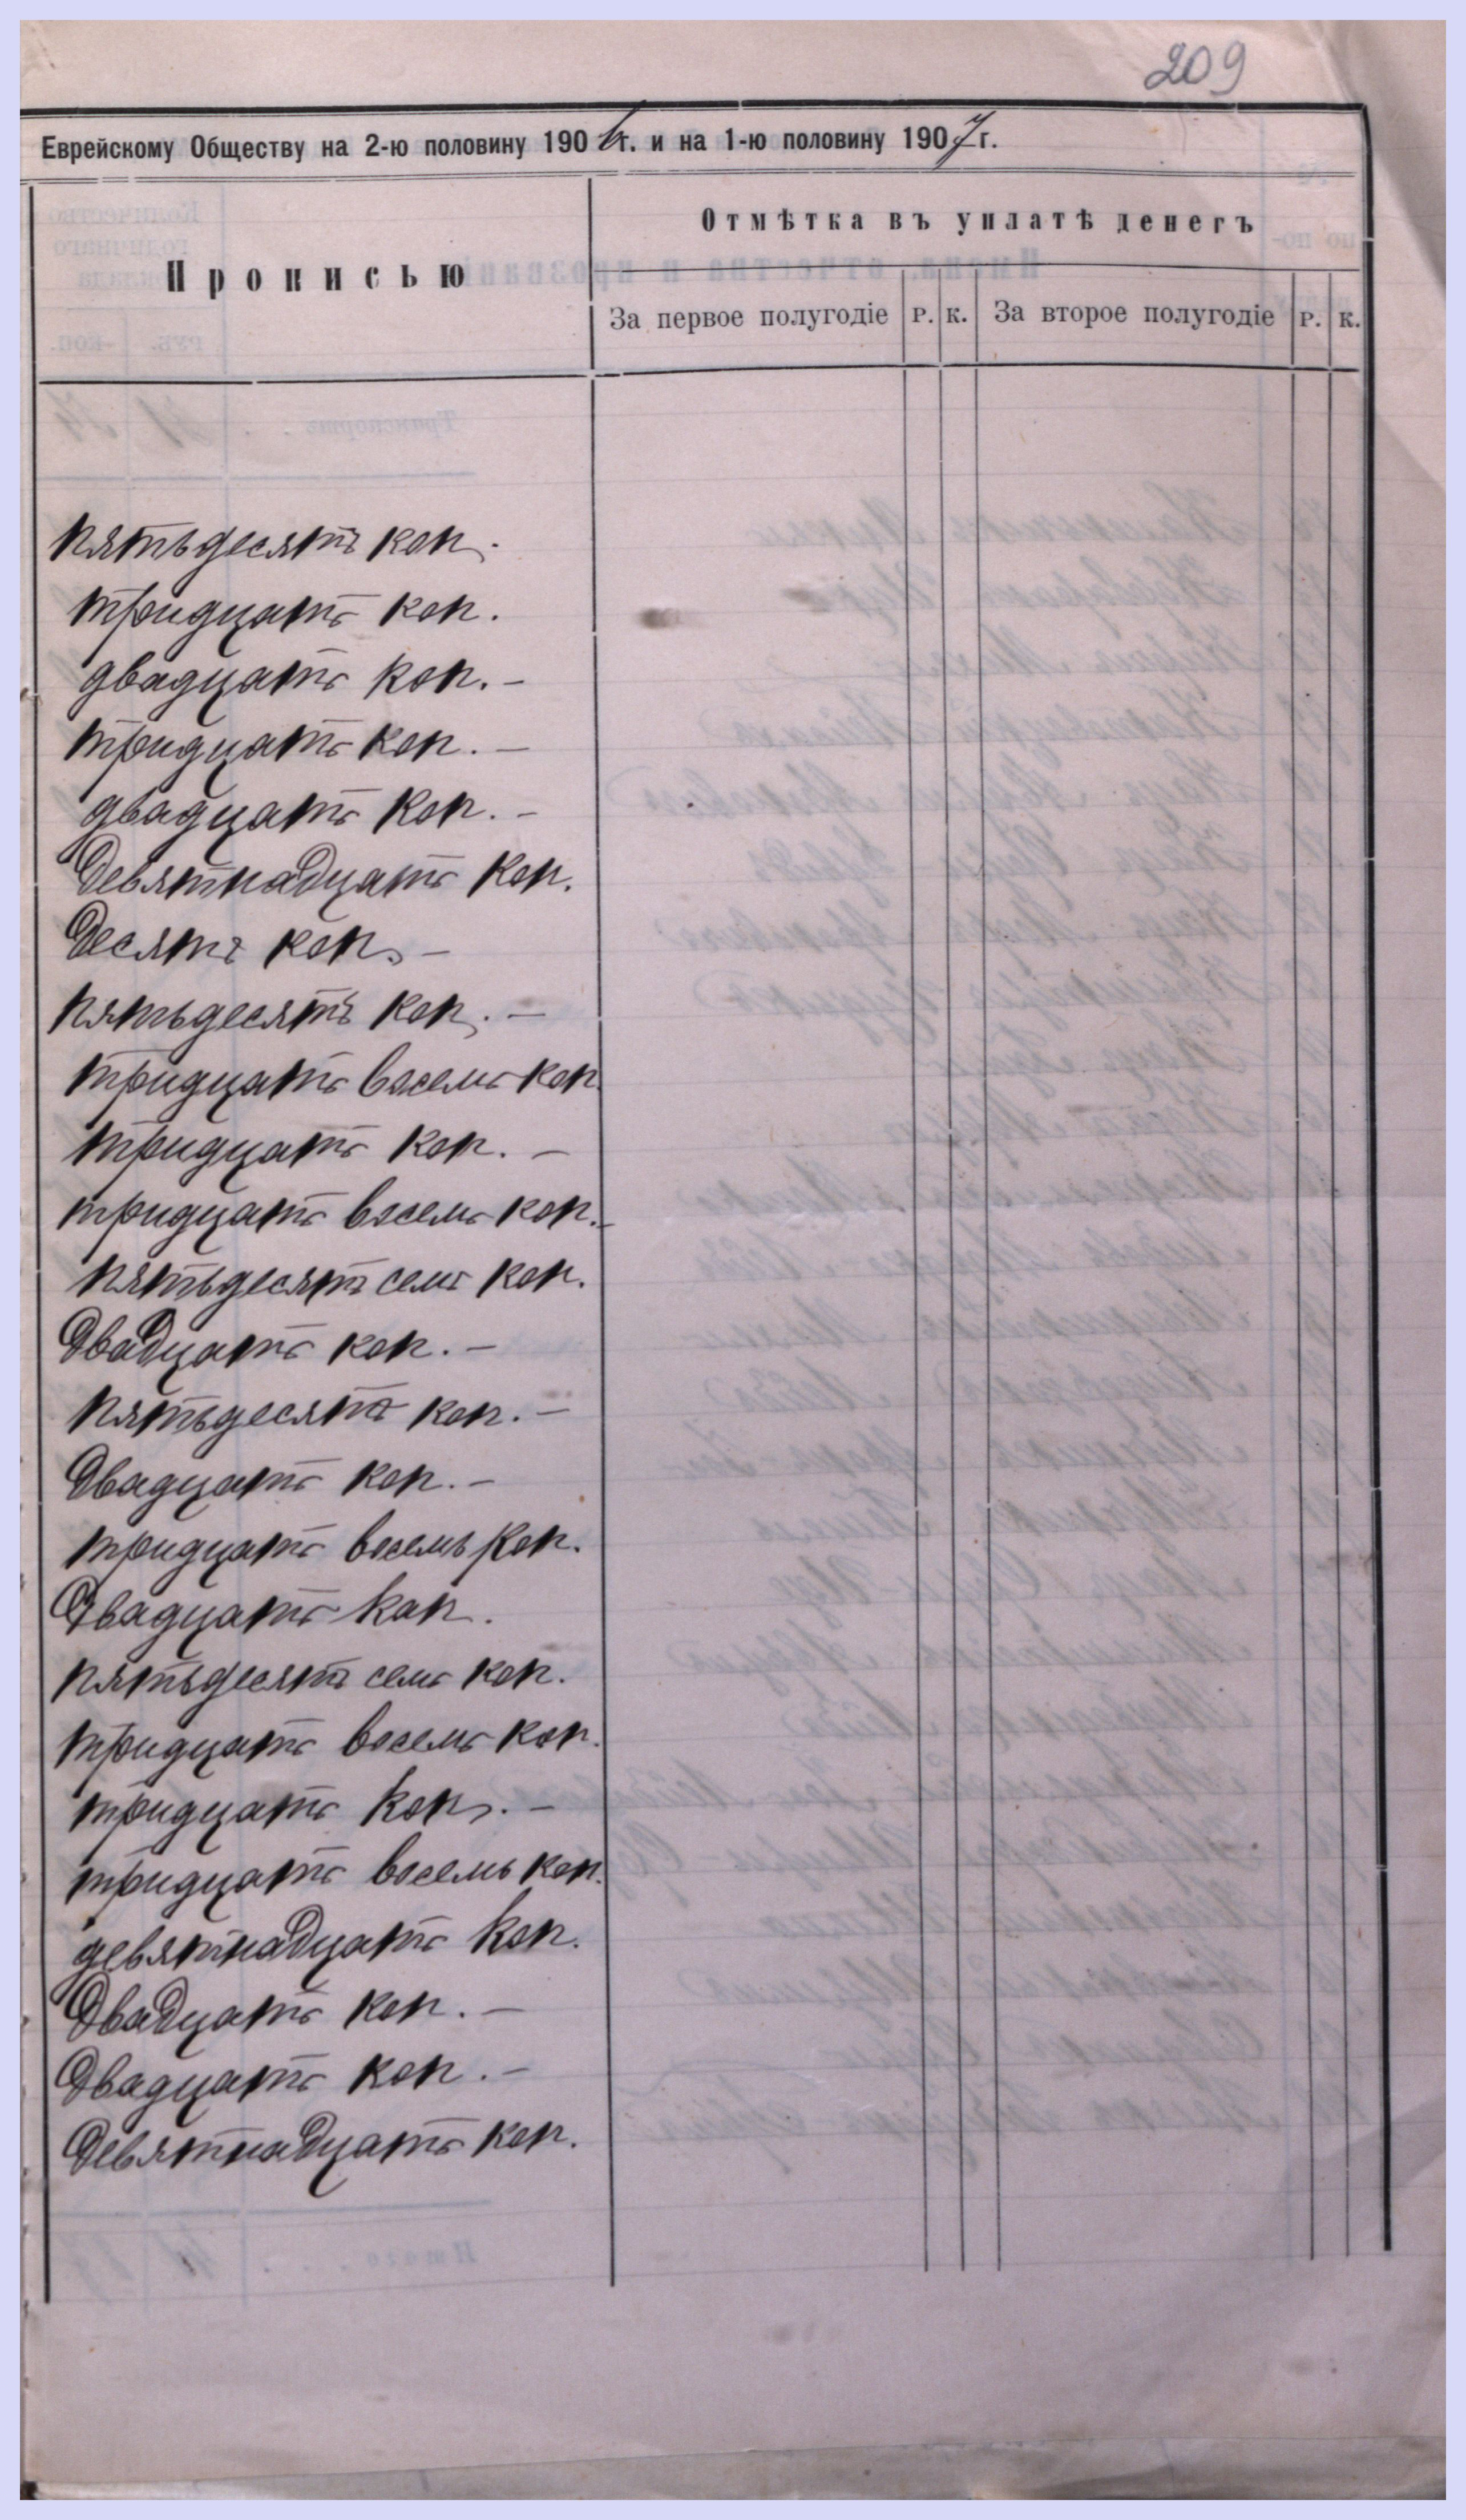 209
Еврейскому Обществу на 2-ю половину 1906 г. и на 1-ю половину 1907 г.
Прописью
Отмѣтка въ уплатѣ денегъ
За первое полугодіе Р. К. За второе полугодіе Р. К.
пятьдесятъ коп.
тридцать коп.
двадцать коп. –
тридцать коп. –
двадцать коп. –
Девятнадцать коп.
Десять коп. –
пятьдесятъ коп. –
тридцать восемь коп.
тридцать коп. –
тридцать восемь коп. –
пятьдесятъ семь коп.
Двадцать коп. –
пятьдесятъ коп. –
Двадцать коп. –
тридцать восемь коп.
Двадцать коп.
пятьдесятъ семь коп.
тридцать восемь коп.
тридцать коп. –
тридцать восемь коп.
девятнадцать коп.
Двадцать коп. –
Двадцать коп. –
Девятнадцать коп.